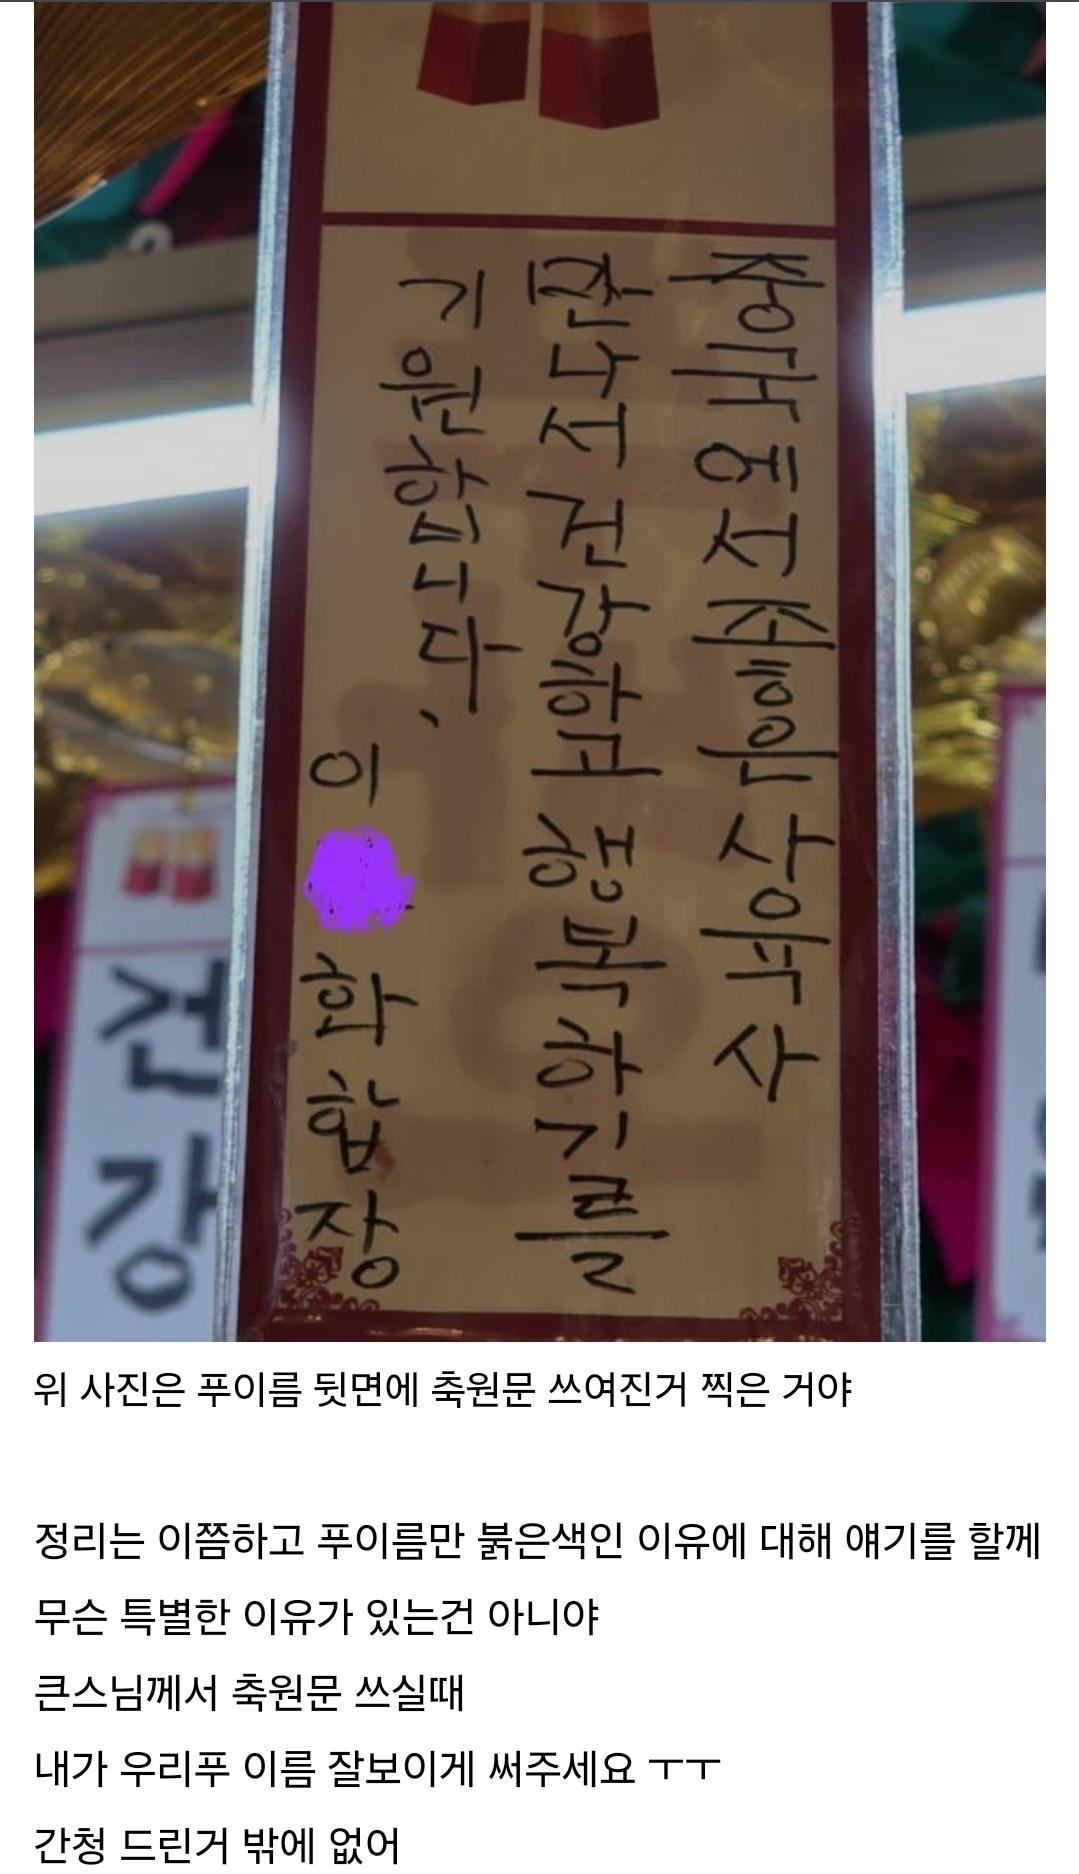 중국에서좋은사육사
만나서건강하고행복하기를
기원합니다.
이
화합장
건강
위 사진은 푸이름 뒷면에 축원문 쓰여진거 찍은 거야
정리는 이쯤하고 푸이름만 붉은색인 이유에 대해 얘기를 할께
무슨 특별한 이유가 있는건 아니야
큰스님께서 축원문 쓰실때
내가 우리푸 이름 잘보이게 써주세요 ㅜㅜ
간청 드린거 밖에 없어